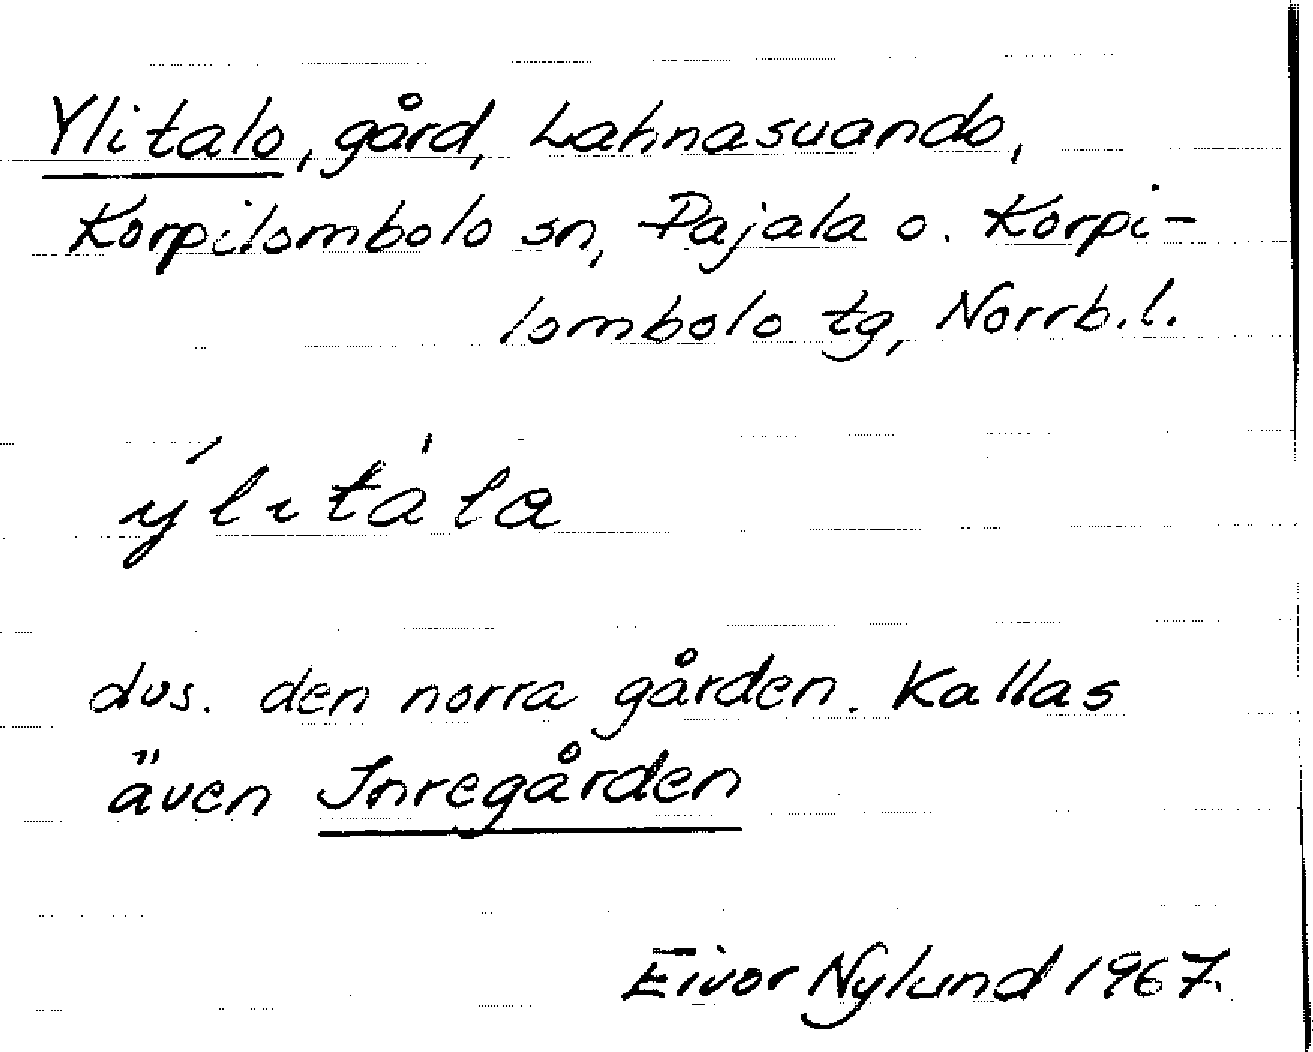 Ylitalo, gård, Lahnasuando,
Korpilombolo sn, Pajala o. Korpi-
lombolo tg, Norrb.l.
ýlıtàla
dvs. den norra gården. Kallas
även Inregården
Eivor Nylund 1967.